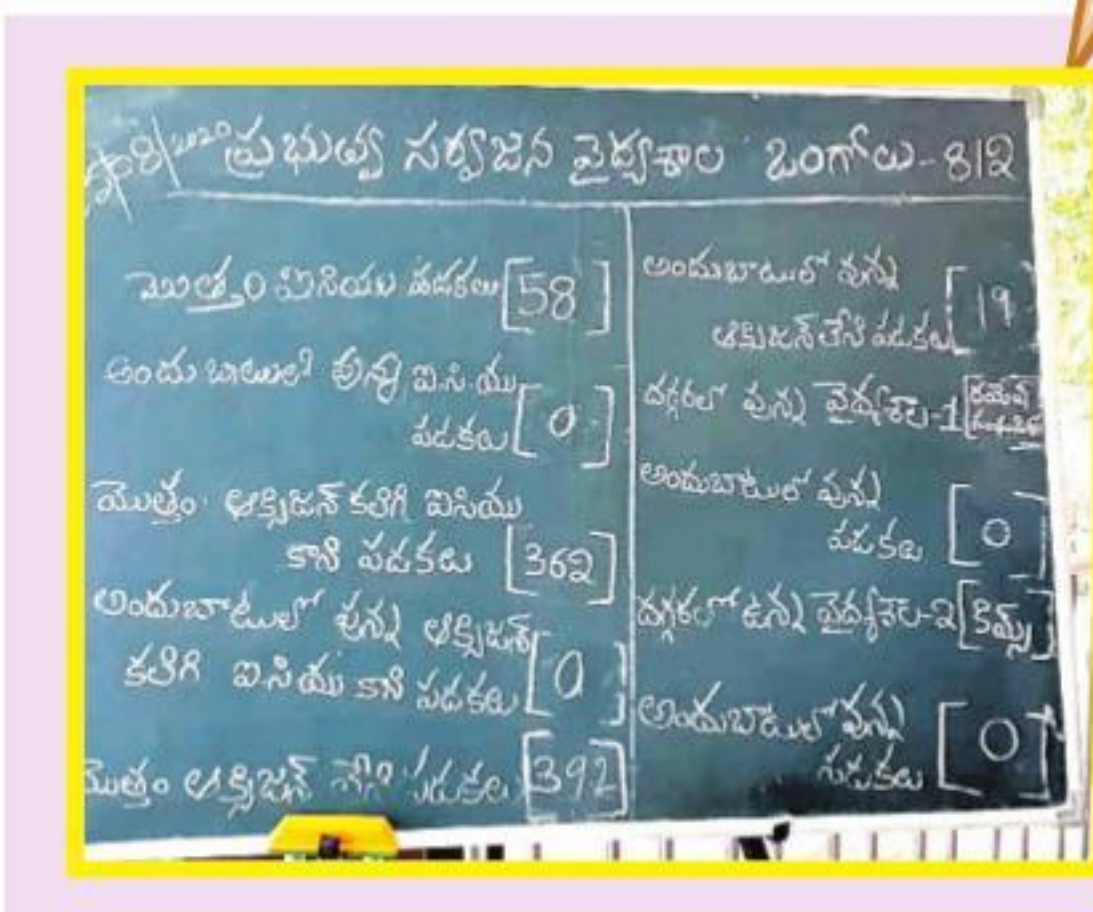 08/2020 ప్రభుత్వ సర్వజన వైద్యశాల ఒంగోలు-812
మొత్తం ఐసియు పడకలు [58]
అందుబాటులో వున్న ఐ.సి.యు
పడకలు [0]
మొత్తం ఆక్సిజన్ కలిగి ఐసియు
కాని పడకలు [362]
అందుబాటులో వున్న ఆక్సిజన్
కలిగి ఐ.సియు కాని పడకలు [0]
మొత్తం ఆక్సిజన్ లేని పడకలు [392]
అందుబాటులో వున్న
ఆక్సిజన్ లేని పడకలు [19]
దగ్గరలో వున్న వైద్యశాల-1 [రమేష్
అందుబాటులో వున్న
పడకలు [0]
దగ్గరలో ఉన్న వైద్యశాల-2 [కిమ్స్]
అందుబాటులో వున్న
పడకలు [0]